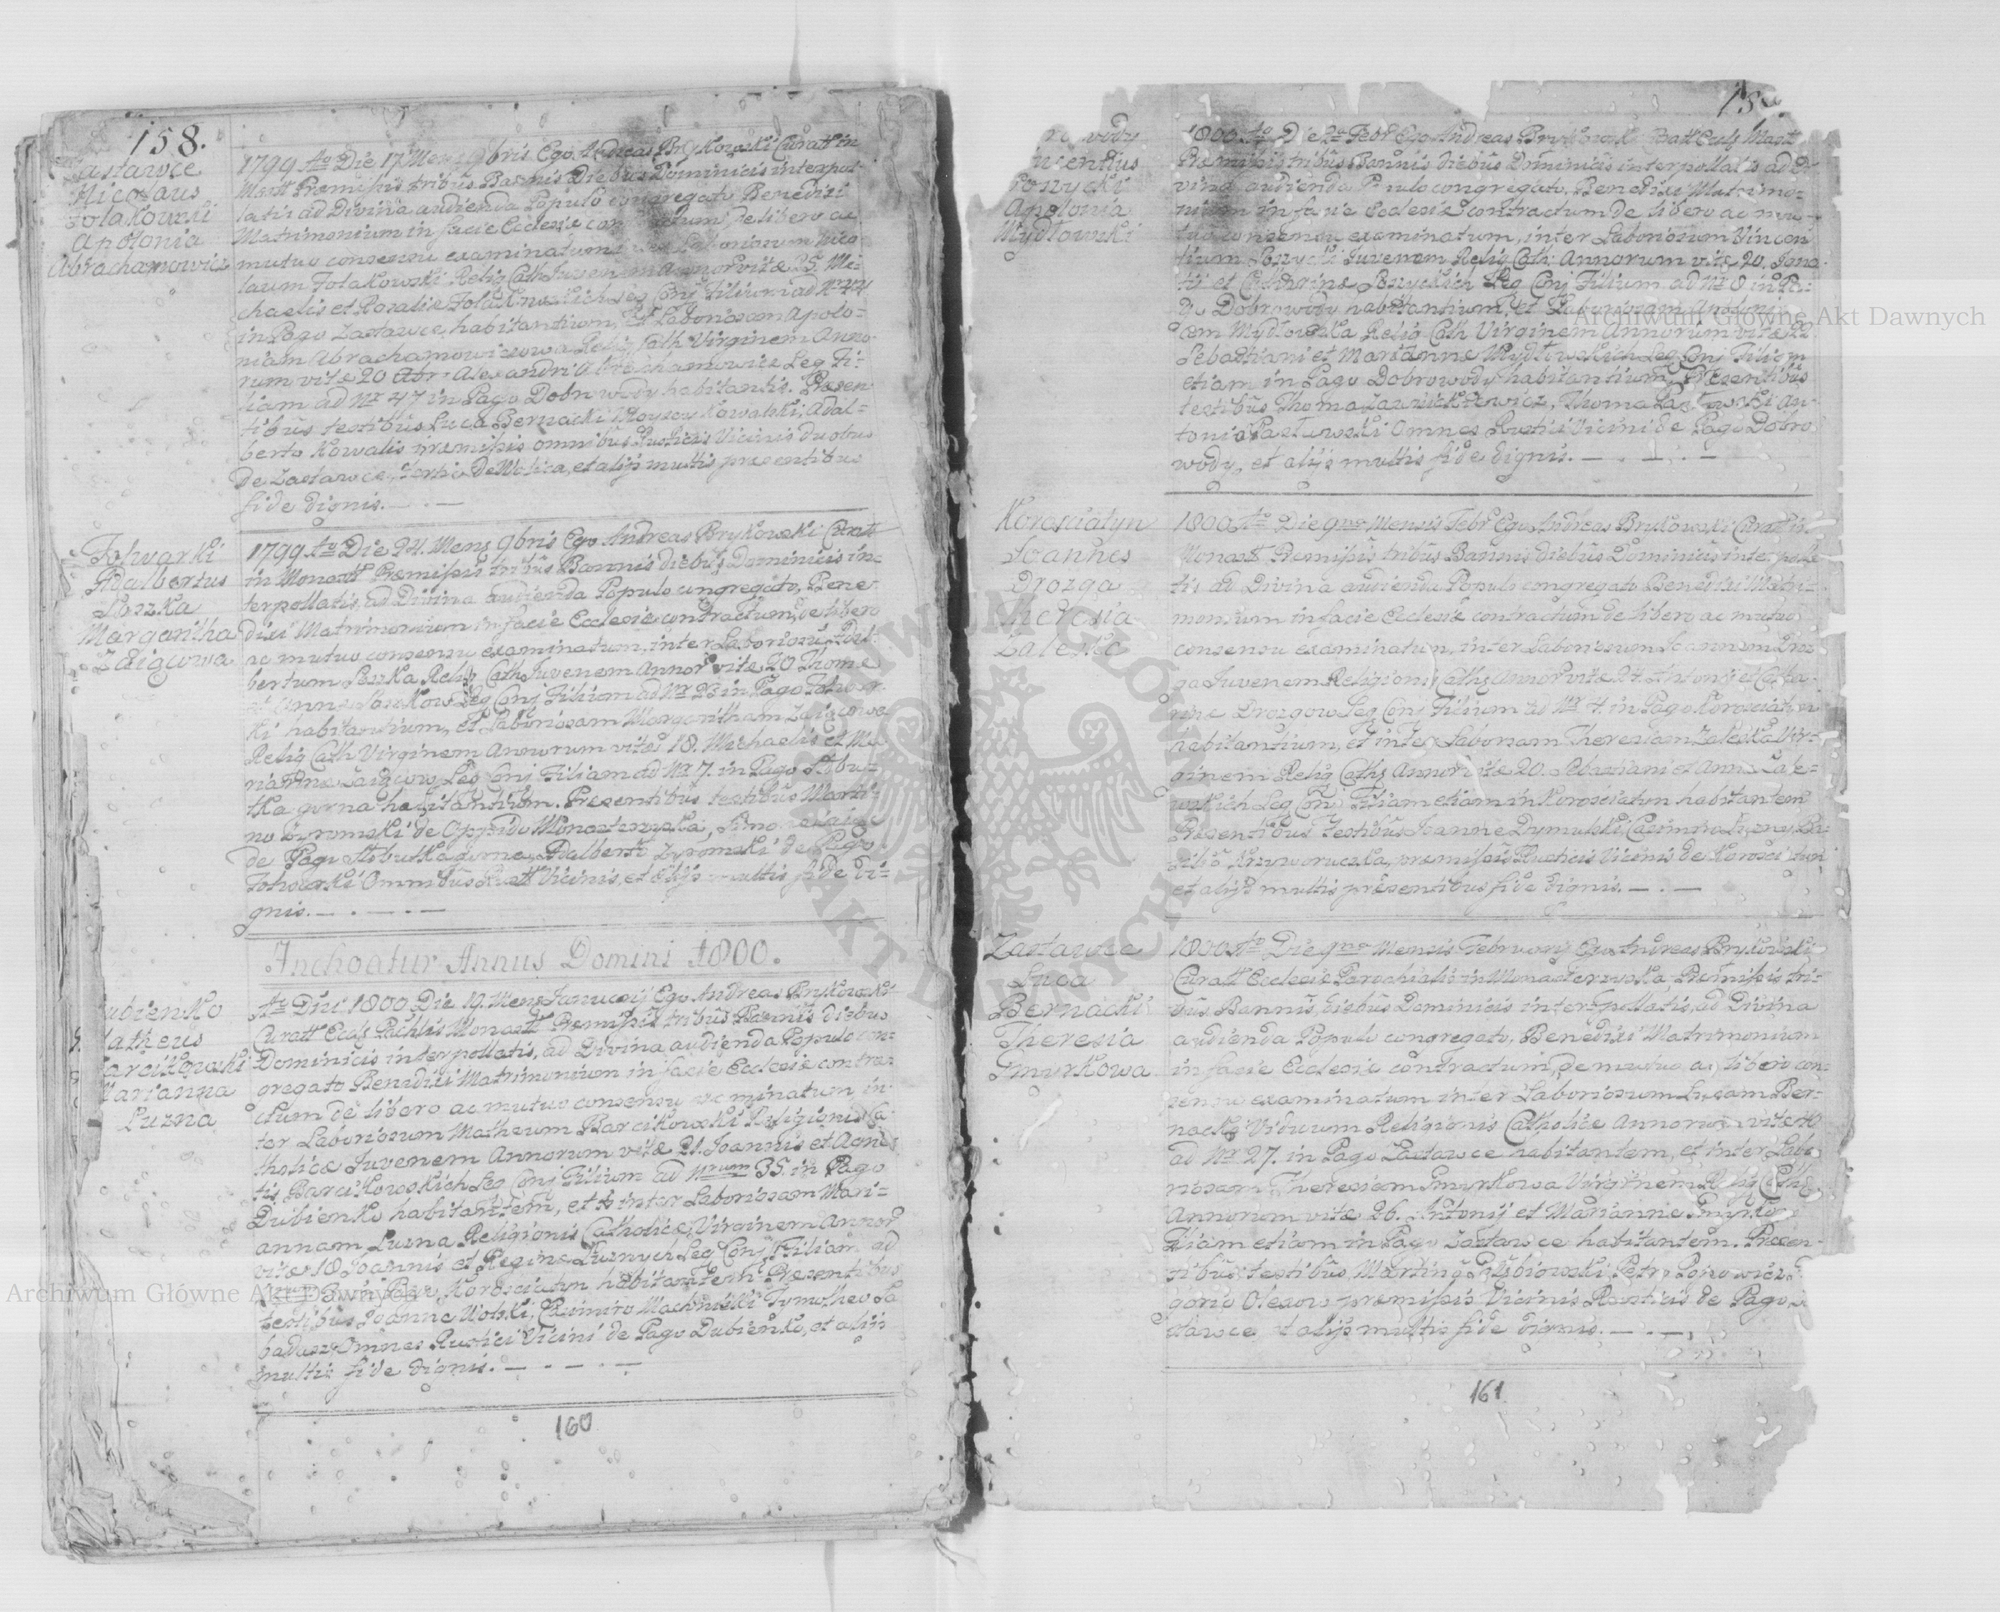 158.
Zastawce
Nicolaus
Folakowski
Apolonia
Abrachamowicz
1799 Ao Die 17 Mens 9bris Ego Andreas Brykowski Curatt in
Monatt Premissis tribus Bannis Diebus Dominicis interpol-
latis ad Divina audienda Populo congregato Benedixi
Matrimonium in facie Ecclesie contractum de libero ac
mutuo consensu examinatum inter Laboriosum Nico
laum Folakowski Relig Cath Juvenem Annor vitæ 25. Mi-
chaelis et Rosalie Folakowskich Leg Conj Filium ad Nr
in Pago Zastawce habitantium, et Laboriosam Apolo-
niam Abrachamowiczowa Relig Cath Virginem Anno-
rum vitæ 20 Alexandri Abrachamowicz Leg Fi-
liam ad Nr 47 in Pago Dobrowody habitantis. Præsen
tibus testibus Luca Bernacki Moysey Kowalski, Adal-
berto Kowalis premissis omnibus Rusticis Vicinis duobus
de Zastawce, tertio de Wolica, et alijs multis presentibus
fide dignis.
Folwarki
Adalbertus
Laszka
Margaritha
Zaigcowa
1799 Ao Die 24. Mens 9bris Ego Andreas Brykowski Curatt
in Monatt Premissis tribus Bannis diebus Dominicis in
terpollatis, ad Divina audienda Populo congregato, Bene
dixi Matrimonium in facie Ecclesie contractum, de libero
ac mutuo consensu examinatum, inter Laboriosu Adal-
bertum Laszka Relig Cath Juvenem Annor vitæ 20 Thome
et Anne Laszkow Leg Conj Filium ad Nr 23 in Pago Folwar
ki habitantium, et Laboriosam Margaritham Zaigcowa
Relig Cath Virginem Annorum vitæ 18. Michaelis et Ma
rianne Zaigcow Leg Conj Filiam ad Nr 7. in Pago Slobu-
tka gorna habitantium. Presentibus testibus Marti-
no Zyromski de Oppido Monasterzyska,
de Pago Slobutka gorna, Adalberto Zyromski de Pago
Folwarki Omnibus Rustt Vicinis, et alijs multis fide di-
gnis.
Inchoatur Annus Domini 1800.
Dubienko
Matheus
Barcikowski
Marianna
Luzna
Ao Dni 1800 Die 19. Mens Januarij Ego Andreas Brykowski
Curatt Eccls Pachlis Monatt Premissis tribus Bannis diebus
Dominicis interpollatis, ad Divina audienda Populo con-
gregato Benedixi Matrimonium in facie Ecclesiæ contra-
ctum de libero ac mutuo consensu examinatum in-
ter Laboriosum Matheum Barcikowski Religionis Ca-
tholicæ Juvenem Annorum vitæ 21. Joannis et Agne-
tis Barcikowskich Leg Conj Filium ad Nrum 35. in Pago
Dubienko habitantem, et inter Laboriosam Mari-
annam Luzna Religionis Catholicæ, Virginem Annor
vitæ 18 Joannis et Regine Luznych Leg Conj Filiam ad
in Pago Korosciatyn habitantem Præsentibus
testibus Joanne Wolski, Casimiro Machnicki Tymotheo La
badusz Omnes Rustici Vicini de Pago Dubienko, et alijs
multis fide dignis.
160
Vincentius
Lozycki
Apolonia
Mydlowski
1800 Ao Die 2a Febr Ego Andreas Brykowski Curatt Eccls Monatt
Premissis tribus Bannis diebus Dominicis interpollatis ad Di-
vina audienda Populo congregato, Benedixi Matrimo-
nium in facie Ecclesiæ contractum de libero ac mu-
tuo consensu examinatum, inter Laboriosum Vincen
tium Lozycki Juvenem Relig Cath Annorum vitæ 20. Igna
tii et Catharine Lozyckich Leg Conj Filium ad Nr 8 in Pa-
go Dobrowody habitantium, et Laboriosam Apoloni
am Mydlowska Relig Cath Virginem Annorum vitæ 22
Sebastiani et Marianne Mydlowskich Leg Conj Filiam
etiam in Pago Dobrowody habitantium, Presentibus
testibus Thoma, Thoma Pastowski An-
tonio Pastuwski Omnes Rustici Vicini de Pago Dobro
wody, et alijs multis fide dignis.
Korosciatyn
Joannes
Drozga
Theresia
Zaleska
1800 Ao Die 9na Mensis Febr Ego Andreas Brykowski Curatt in
Monastt Premissis tribus Bannis diebus Dominicis interpolla
tis ad Divina audienda Populo congregato Benedixi Matri-
monium in facie Ecclesiæ contractum de libero ac mutuo
consensu examinatum, inter Laboriosum Joannem Droz
ga Juvenem Religionis Cathz Annor vitæ 24. Antonij et Catha
rine Drozgow Leg Conj Filium ad Nr 4. in Pago Korosciatyn
habitantium, et inter Laborsam Theresiam Zaleska Vir-
ginem Relig Cathz Annor vitæ 20. Sebastiani et Anne Zale-
wskich Leg Conj Filiam etiam in Korosciatyn habitantem
Presentibus testibus Joanne Dymulski Casimiro
Krzyworuczka, premissis Rusticis Vicinis de Korosciatyn
et alijs multis presentibus fide dignis.
Zastawce
Luca
Bernacki
Theresia
Smyrkowa
1800 Ao Die 9na Mensis Februarij Ego Andreas Brykowski
Curatt Ecclesie Parochialis in Monasterzyska Premissis tri-
bus Bannis, diebus Dominicis interpollatis, ad Divina
audienda Populo congregato, Benedixi Matrimonium
in facie Ecclesiæ contractum, de mutuo ac libero con-
sensu examinatum inter Laboriosum Lucam Ber-
nacki Viduum Religionis Catholicæ Annorum vitæ 40
ad Nr 27. in Pago Zastawce habitantem, et inter Labo
riosam Theresiam Smyrkowa Virginem Relig Cath
Annorum vitæ 26. Antonij et Marianne Smyrkow
Filiam etiam in Pago Zastawce habitantem. Presen-
tibus testibus Martino Petro
gorio Olexow premissis Vicinis Rusticis de Pago Za
stawce et alijs multis fide dignis.
161
Archiwum Główne Akt Dawnych
Archiwum Główne Akt Dawnych
ARCHIWUM GŁÓWNE AKT DAWNYCH